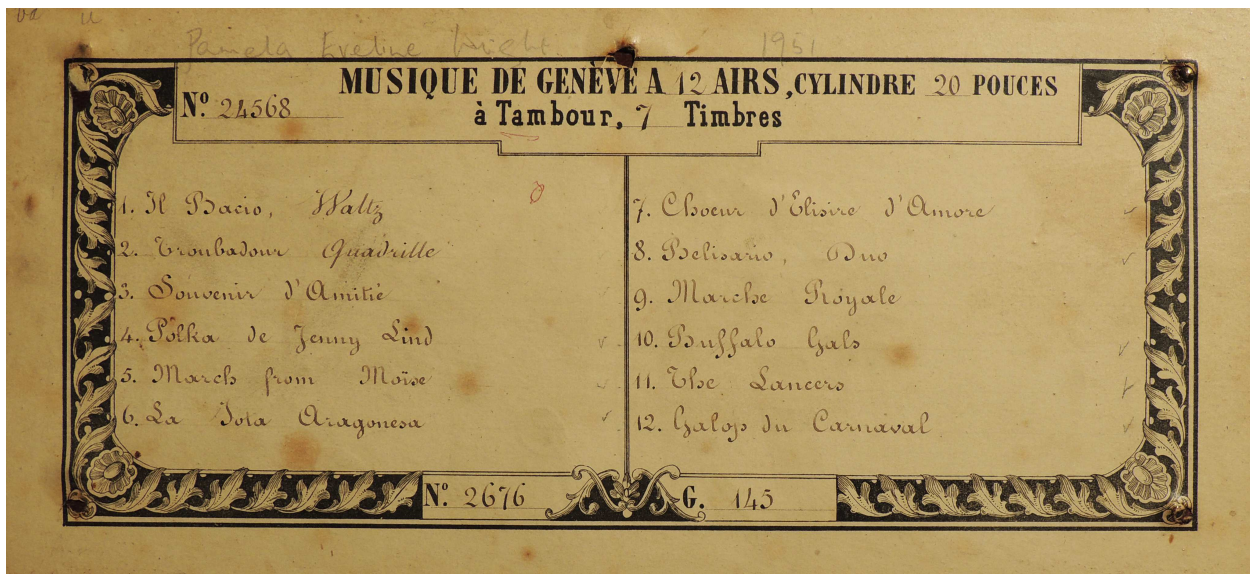 Pamela Eveline Wright. 1951
MUSIQUE DE GENÈVE A 12 AIRS, CYLINDRE 20 POUCES
Nº 24568
à Tambour, 7 Timbres
1. Il Bacio, Waltz
2. Troubadour Quadrille
3. Souvenir d'Amitié
4. Polka de Jenny Lind
5. March from Moïse
6. La Jota Aragonesa
7. Choeur d'Elisire d'Amore
8. Belisario, Duo
9. Marche Royale
10. Buffalo Gals
11. The Lancers
12. Galop du Carnaval
Nº 2676
G. 145